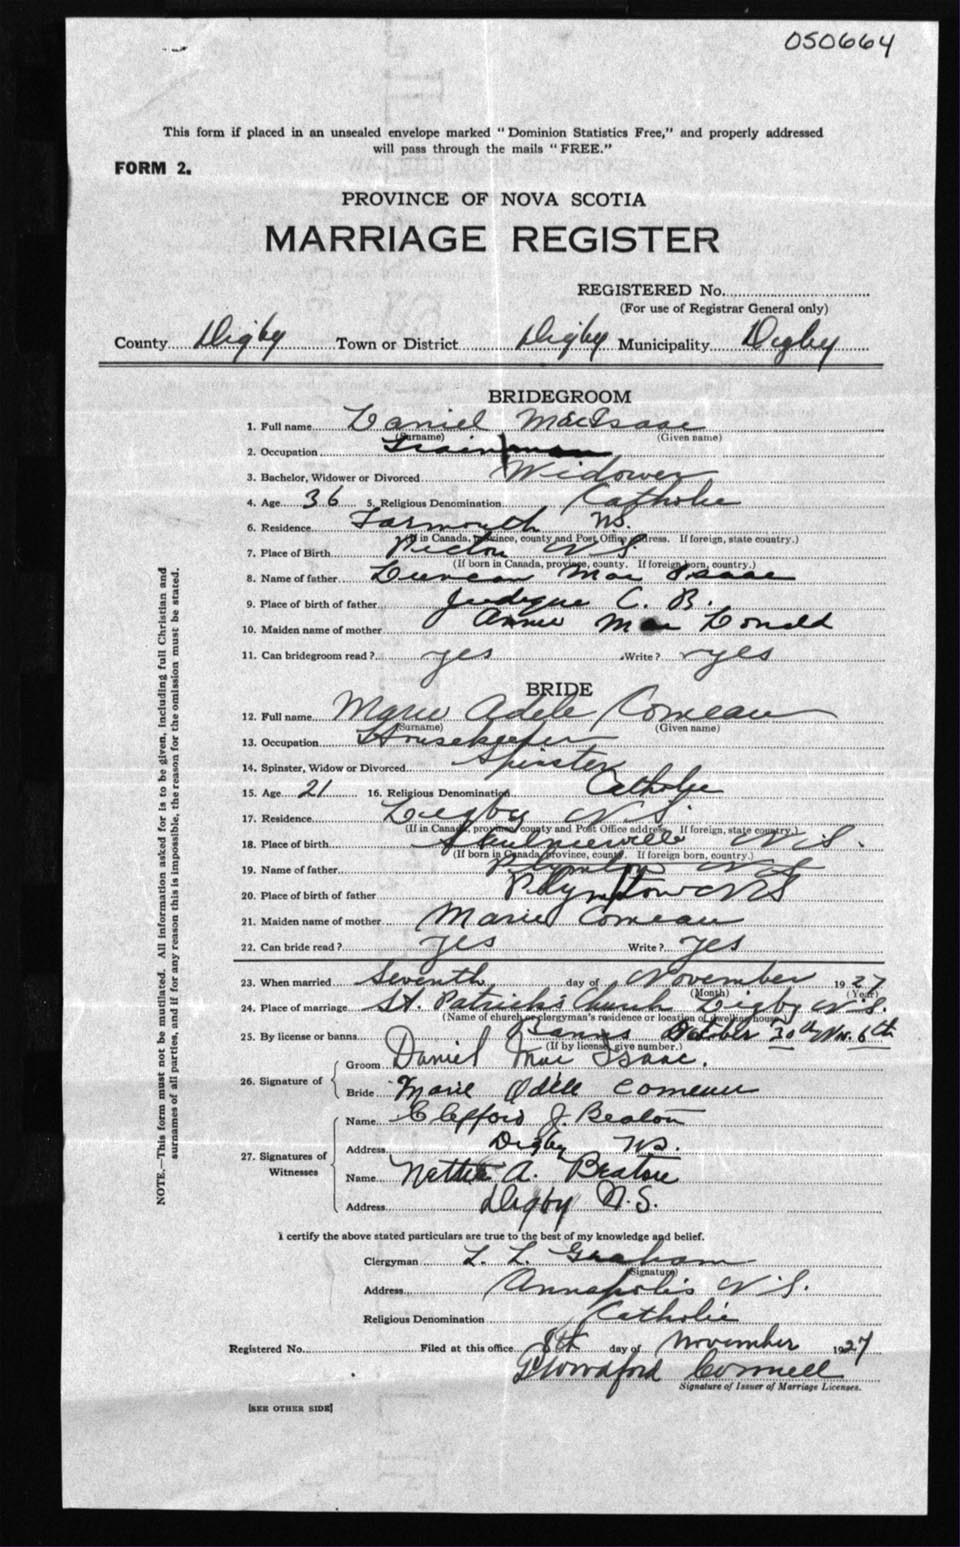 050664
This form if placed in an unsealed envelope marked "Dominion Statistics Free," and properly addressed
will pass through the mails "FREE."
FORM 2.
PROVINCE OF NOVA SCOTIA
MARRIAGE REGISTER
REGISTERED No.
(For use of Registrar General only)
County Digby Town or District Digby Municipality Digby
BRIDEGROOM
1. Full name Daniel MacIsaac
(Surname) (Given name)
2. Occupation Trainman
3. Bachelor, Widower or Divorced Widower
4. Age 36 5. Religious Denomination Catholic
6. Residence Yarmouth N.S.
(If in Canada, province, county and Post Office address. If foreign, state country.)
7. Place of Birth Pictou N.S.
(If born in Canada, province, county. If foreign born, country.)
8. Name of father Duncan Mac Isaac
9. Place of birth of father Judique C. B.
10. Maiden name of mother Annie Mac Donald
11. Can bridegroom read? yes Write? yes
BRIDE
12. Full name Marie Adele Comeau
(Surname) (Given name)
13. Occupation Housekeeper
14. Spinster, Widow or Divorced Spinster
15. Age 21 16. Religious Denomination Catholic
17. Residence Digby N S
(If in Canada, province, county and Post Office address. If foreign, state country.)
18. Place of birth N S.
(If born in Canada, province, county. If foreign born, country.)
19. Name of father
20. Place of birth of father Plympton N S
21. Maiden name of mother Marie Comeau
22. Can bride read? yes Write? yes
23. When married Seventh day of November 1927
(Month) (Year)
24. Place of marriage St. Patrick's Church Digby N.S.
(Name of church or clergyman's residence or location of dwelling house)
25. By license or banns Banns October 30th Nov. 6th
(If by license, give number.)
26. Signature of
Groom Daniel Mac Isaac.
Bride Marie Odele Comeau
27. Signatures of Witnesses
Name Clifford J. Beaton
Address Digby N.S.
Name Nettie A. Beaton
Address Digby N.S.
I certify the above stated particulars are true to the best of my knowledge and belief.
Clergyman L. L. Graham
(Signature)
Address Annapolis N.S.
Religious Denomination Catholic
Registered No. Filed at this office 8th day of November 1927
Connell
Signature of Issuer of Marriage Licenses.
[SEE OTHER SIDE]
NOTE.—This form must not be mutilated. All information asked for is to be given, including full Christian and
surnames of all parties, and if for any reason this is impossible, the reason for the omission must be stated.